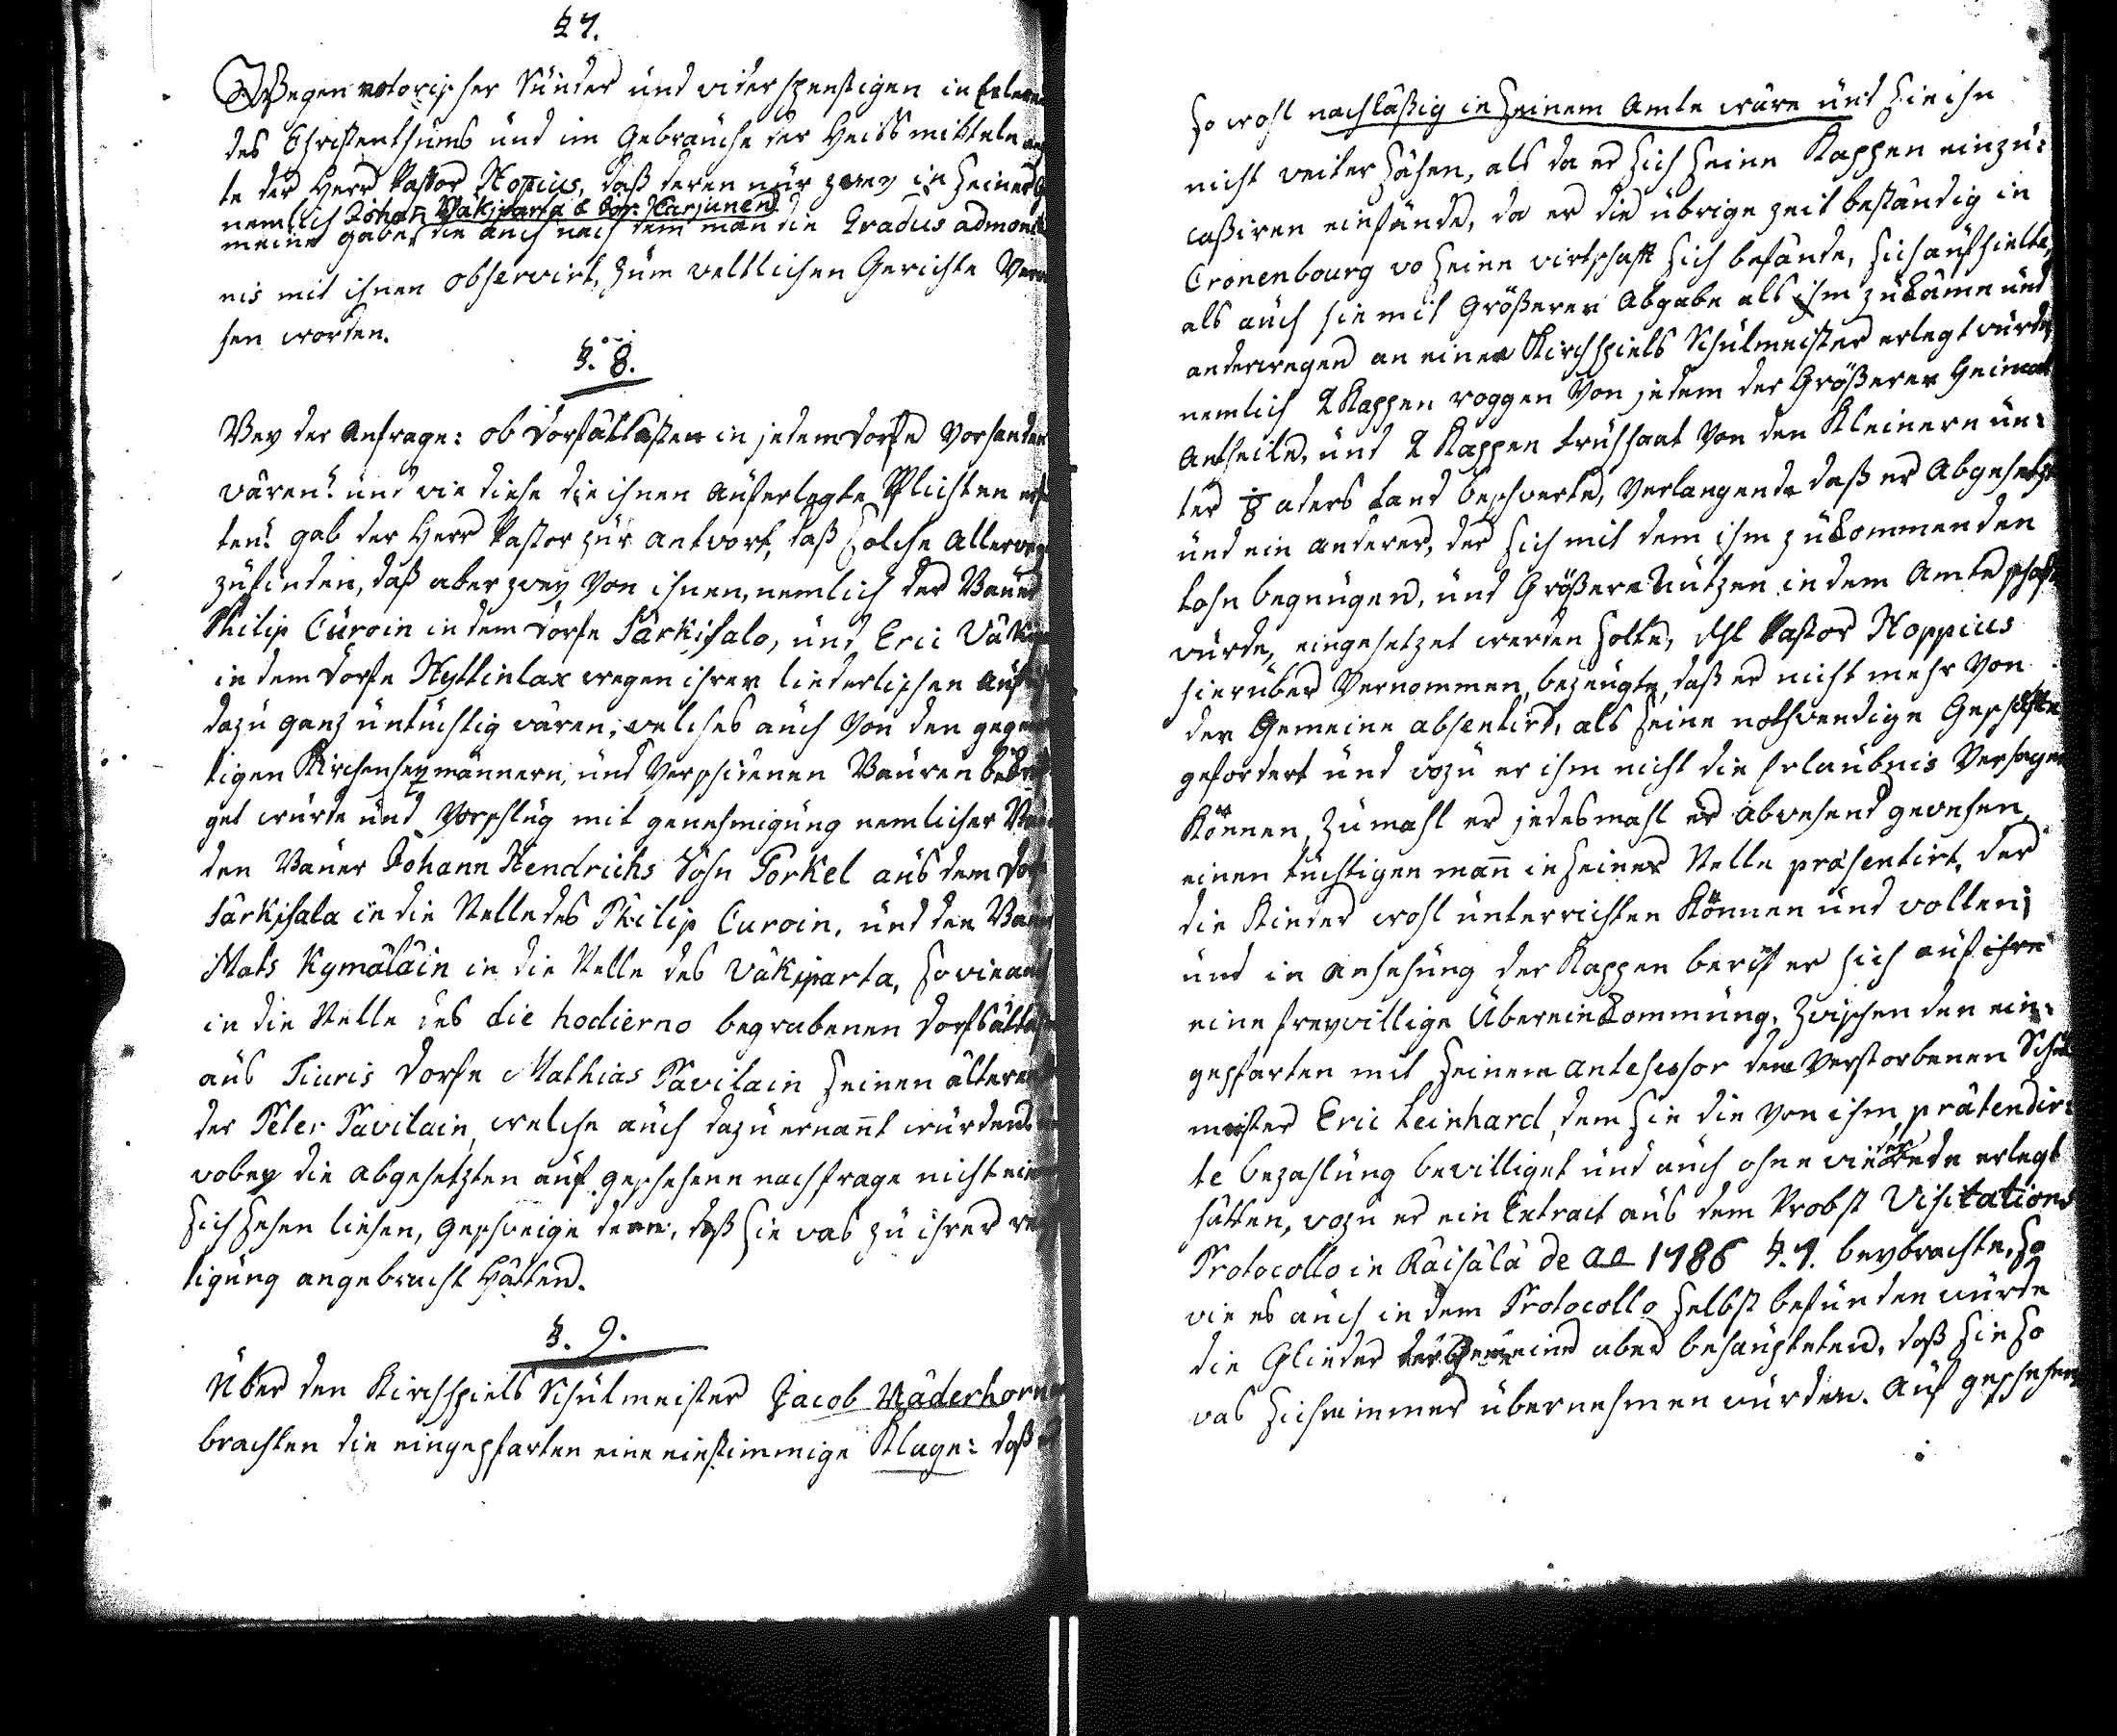 § 7.
Wegen notorischer Sünder und widerspenstigen in Erlernen
des Christenthums und im Gebrauche der Heilsmitteln
te der Herr Pastor Hoppius, daß deren nur zwey in seiner
nemlich Johan Väkiparta & Jör. Karjunen
meine gabe, die auch nach dem man die Gradus admonitio
nis mit ihnen observirt, zum weltlichen Gerichte
sen worden.
§. 8.
Bey der Anfrage: ob Dorfältesten in jedem Dorfe vorhanden
wären? und wie diese die ihnen auferlegte Pflichten
ten? gab der Herr Pastor zür antwort, daß solche Allerwegen
zufinden, daß aber zwey von ihnen, nemlich der Bauer
Philip Curoin in dem Dorfe Särkisalo, und Eric Väkiparta
in dem Dorfe Hyttinlax wegen ihrer liederlichen
dazu ganz untüchtig wären, welches auch von den gegen
tigen Kirchensexmännern, und verschidenen Bauren
get wurde und Vorschlug mit genehmigung nemlicher
den Bauer Johann Hendrichs Sohn Torkel aus dem Dorfe
Särkisala in die Stelle des Philip Curoin, und den Bauer
Mats Kymäläin in die Stelle des Väkiparta, so wie auch
in die Stelle des die hodierno begrabenen Dorfsältesten
aus Tiuris Dorfe Mathias Pavilain seinen älteren
der Peter Pavilain, welche auch dazu ernant wurden
wobey die abgesetzten auf geschehene nachfrage nicht
sich sehen liesen, geschweige denn, daß sie was zu ihrer
tigung angebracht hätten.
§. 9.
Über den Kirchspiels Schulmeister Jacob Wäderhorn
brachten die eingepfarten eine einstimmige Klage: daß er
so wohl nachläßig in seinem Amte wäre und sie ihn
nicht weiter sähen, als da er sich seine Kappen einzu:
caßiren einfände, da er die übrige zeit beständig in
Cronenbourg wo seine wirtschaft sich befände, sich aufhielte,
als auch sie mit größerer Abgabe als ihm zukäme und
anderwegen an einen Kirchspiels Schulmeister erlegt würde,
nemlich 2 Kappen roggen von jedem der Größeren Heimat
Antheile, und 2 Kappen Früssaat von den Kleinern un:
ter 1/8 aders Land beschwerte, verlangende daß er abgesetzt
und ein anderer, der sich mit dem ihm zukommenden
Lohn begnügen, und größere Nutzen in dem Amte schaffen
würde, eingesetzet werden solte, Pastor Hoppius
hierüber vernommen, bezeugte, daß er nicht mehr von
der Gemeine absentirt, als seine nothwendige Geschäfte
gefordert und wozu er ihm nicht die Erlaubnis versagen
können, zumahl er jedesmahl er abwesend gewesen,
einen tüchtigen mann in seiner Stelle präsentirt, der
die Kinder wohl unterrichten können und wollen;
und in ansehung der Kappen berif er sich auf ihre
eine freywillige Übereinkommung, zwischen den ein:
gepfarten mit seinem Antesessor dem verstorbenen Schul
meister Eric Leinhard, dem sie die von ihm prätendir:
te bezahlung bewilliget und auch ohne wiederrede erlegt
hätten, wozu er ein Extract aus dem Probst Visitations
Protocollo in Räisälä de ao 1786 §. 7. beybrachte, so
wie es auch in dem Protocollo selbst befunden würde
die Glieder der Gemeine aber behaupteten, daß sie so
was sich nimmer übernehmen würden. Auf geschehene